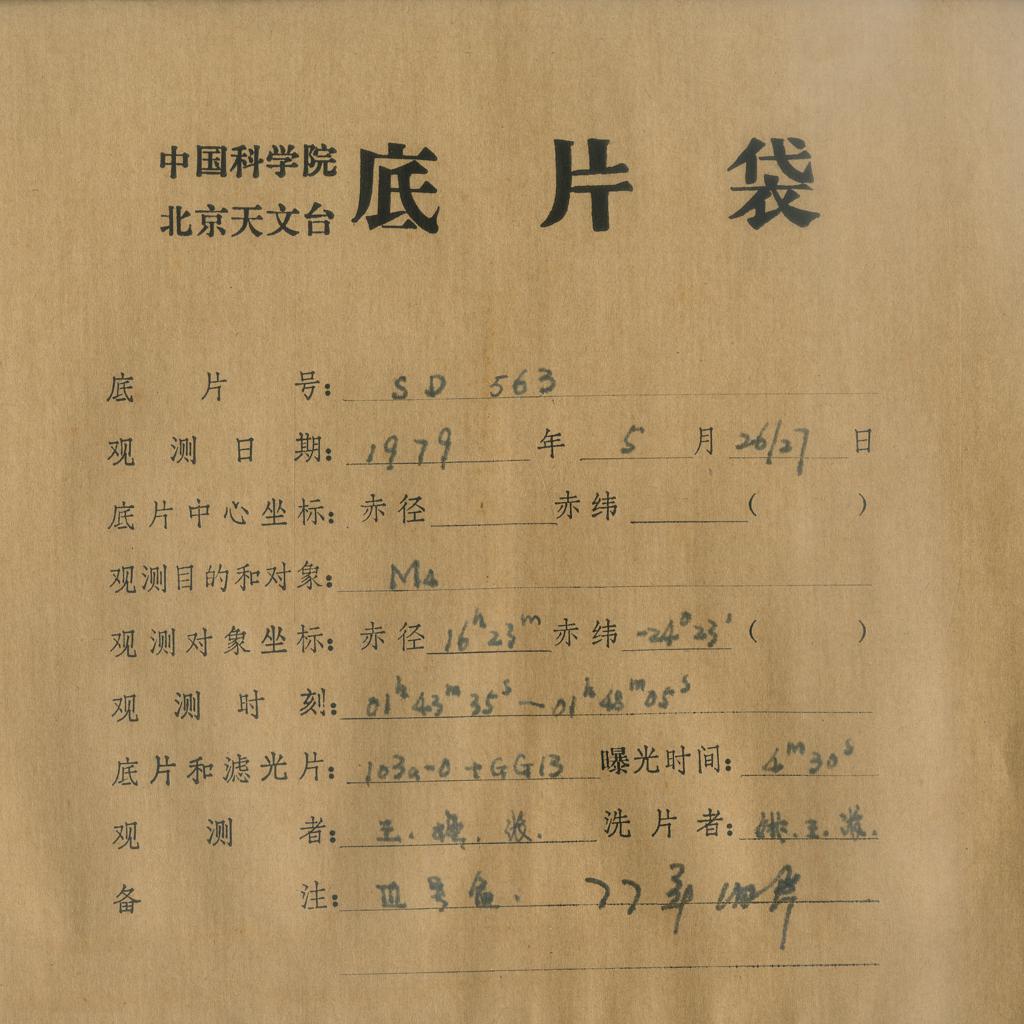 中国科学院
北京天文台
底片袋
底片号: SD 563
观测日期: 1979年 5月 26/27日
底片中心坐标: 赤径 赤纬 ( )
观测目的和对象: M4
观测对象坐标: 赤径 16h23m 赤纬 -24°23′ ( )
观测时刻: 01h43m35s—01h48m05s
底片和滤光片: 103a-O+GG13 曝光时间: 4m30s
观测者: 王. . 洗片者: . 王.
备注: III号盒. 77年